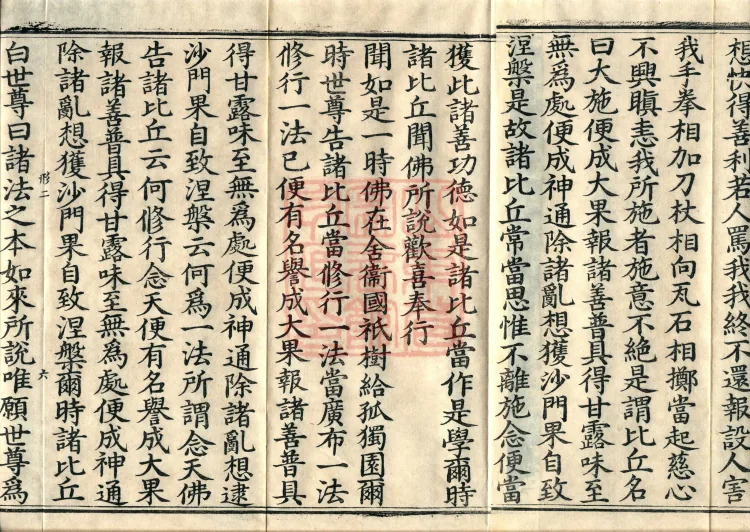 想快得善利若人罵我我終不還報設人害
我手拳相加刀杖相向瓦石相擲當起慈心
不興瞋恚我所施者施意不絕是謂比丘名
曰大施便成大果報諸善普具得甘露味至
無為處便成神通除諸亂想獲沙門果自致
涅槃是故諸比丘常當思惟不離施念便當
獲此諸善功德如是諸比丘當作是學爾時
諸比丘聞佛所說歡喜奉行
聞如是一時佛在舍衞國祇樹給孤獨園爾
時世尊告諸比丘當修行一法當廣布一法
修行一法已便有名譽成大果報諸善普具
得甘露味至無為處便成神通除諸亂想逮
沙門果自致涅槃云何為一法所謂念天佛
告諸比丘云何修行念天便有名譽成大果
報諸善普具得甘露味至無為處便成神通
除諸亂想獲沙門果自致涅槃爾時諸比丘
二 六
白世尊曰諸法之本如來所說唯願世尊為